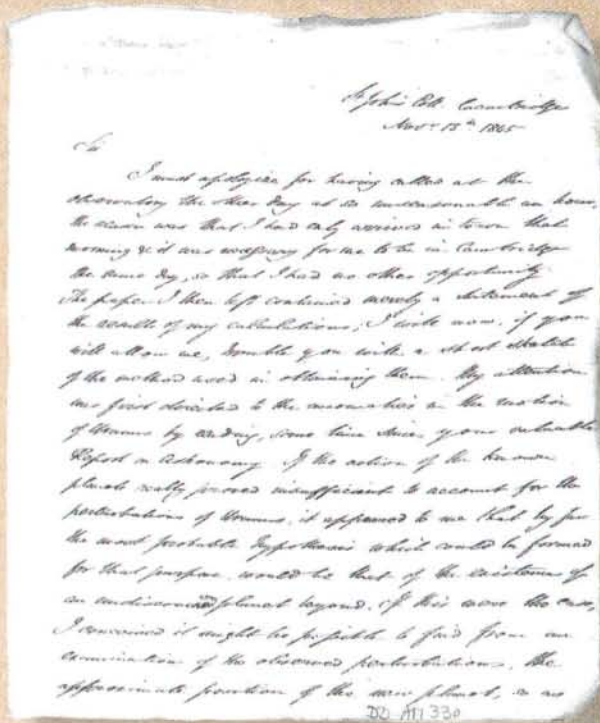 St John's Coll. Cambridge
Novr 13th 1845
Sir
I must apologize for having called at the
observatory the other day at so unseasonable an hour,
the reason was that I had only arrived in town that
morning & it was necessary for me to be in Cambridge
the same day, so that I had no other opportunity.
The paper I then left contained merely a statement of
the results of my calculations; I will now, if you
will allow me, trouble you with a short sketch
of the method used in obtaining them. My attention
was first directed to the in the motion
of Uranus by reading, some time since your valuable
Report on Astronomy. If the action of the known
planets really proved insufficient to account for the
perturbations of Uranus, it appeared to me that by far
the most probable hypothesis which could be formed
for that purpose, would be that of the existence of
an undiscovered planet beyond. If this were the case,
I conceived it might be possible to find from an
examination of the observed perturbations, the
approximate position of the new planet, so as
DD AM 330